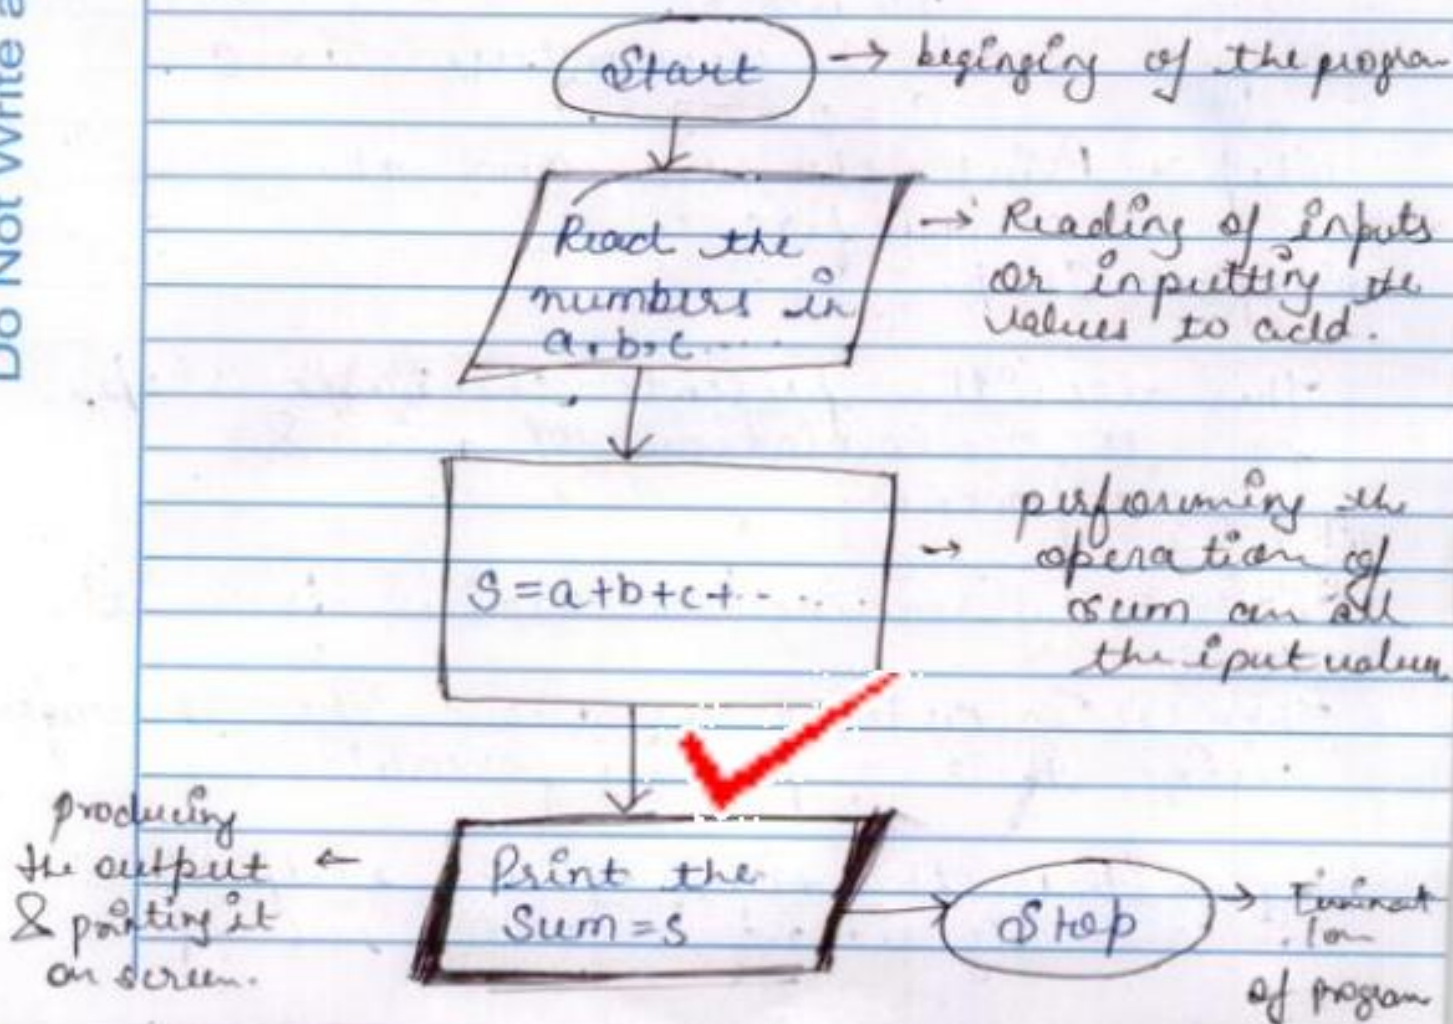 Do Not Write a
Start → begining of the program
Read the
numbers in
a, b, c ....
→ Reading of inputs
or inputting the
values to add.
S = a+b+c+.....
→ performing the
operation of
sum on all
the iput values
producing
the output ←
& printing it
on screen.
Print the
Sum = s
Stop →
of program